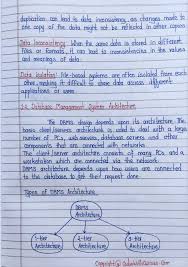 duplication can lead to data inconsistency, as changes made to
one copy of the data might not be reflected in other copies
Data Inconsistency: When the same data is stored in different
files or formats, it can lead to inconsistencies in the values
and meanings of data.
Data Isolation: File-based systems are often isolated from each
other, making it difficult to share data across different
applications or users.
Database Management System Architecture
The DBMS design depends upon its architecture. The
basic client/server architecture is used to deal with a large
number of PCs, web servers, database servers and other
components that are connected with networks.
The client/server architecture consists of many PCs and a
workstation which are connected via the network.
DBMS architecture depends upon how users are connected to
the database to get their request done.
Types of DBMS Architecture
DBMS
Architecture
1-tier
Architecture
2-tier
Architecture
3-tier
Architecture